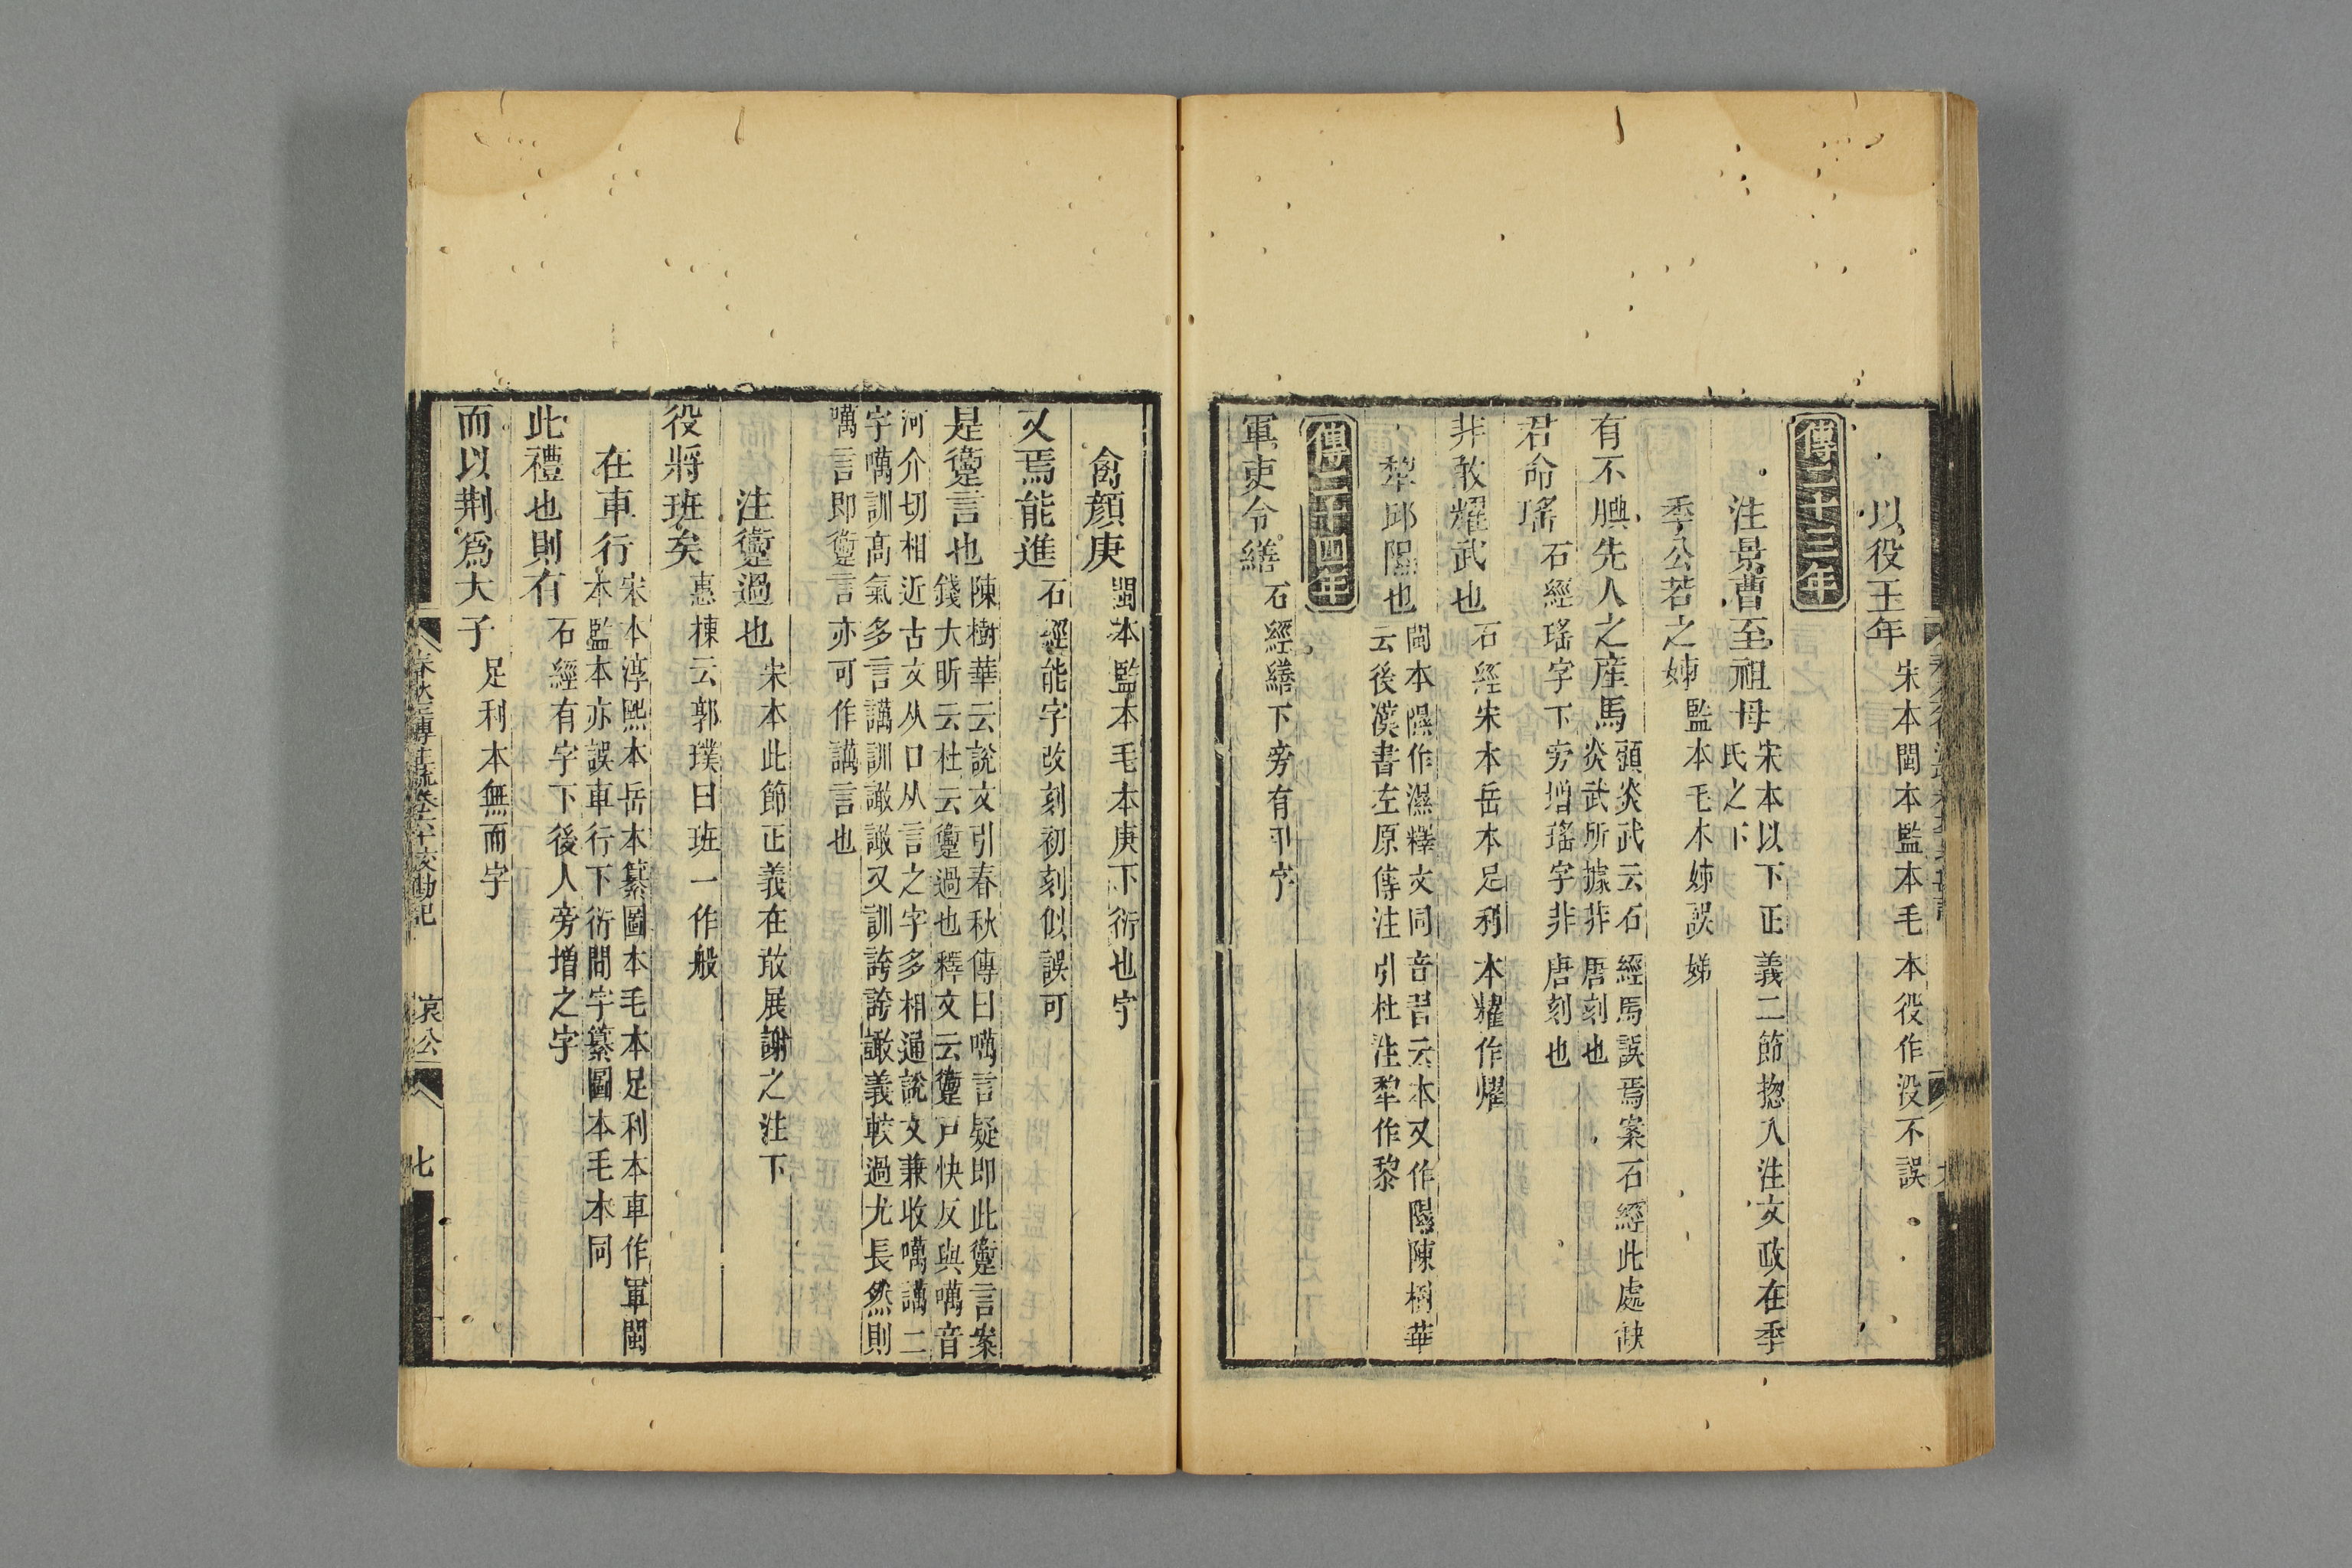 以役王年宋本閩本監本毛本役作没不誤
傳二十三年
注景曹至祖母宋本以下正義二節揔入注文政在季
氏之下
季公若之姊監本毛本姊誤娣
有不腆先人之産馬顧炎武云石經馬誤焉案石經此處缺
炎武所據非唐刻也
君命瑤石經瑤字下旁增瑤字非唐刻也
非敢耀武也石經宋本岳本足利本耀作燿
犂邱隰也閩本隰作濕釋文同音習云本又作隰陳樹華
云後漢書左原傳注引杜注犂作黎
傳二十四年
軍吏令繕石經繕下旁有卭字
禽顔庚閩本監本毛本庚下衍也字
又焉能進石經能字改刻初刻似誤可
是躗言也陳樹華云說文引春秋傳曰噧言疑即此躗言案
錢大昕云杜云躗過也釋文云躗戸快反與噧音
河介切相近古文从口从言之字多相通說文兼收噧譪二
字噧訓高氣多言譪訓譀譀又訓誇誇譀義較過尤長然則
噧言即躗言亦可作譪言也
注躗過也宋本此節正義在敢展謝之注下
役將班矣惠棟云郭璞曰班一作般
在車行宋本淳熙本岳本纂圖本毛本足利本車作軍閩
本監本亦誤車行下衍間字纂圖本毛本同
此禮也則有石經有字下後人旁增之字
而以荆爲大子足利本無而字
春秋左傳注疏卷六十校勘記
哀公
七